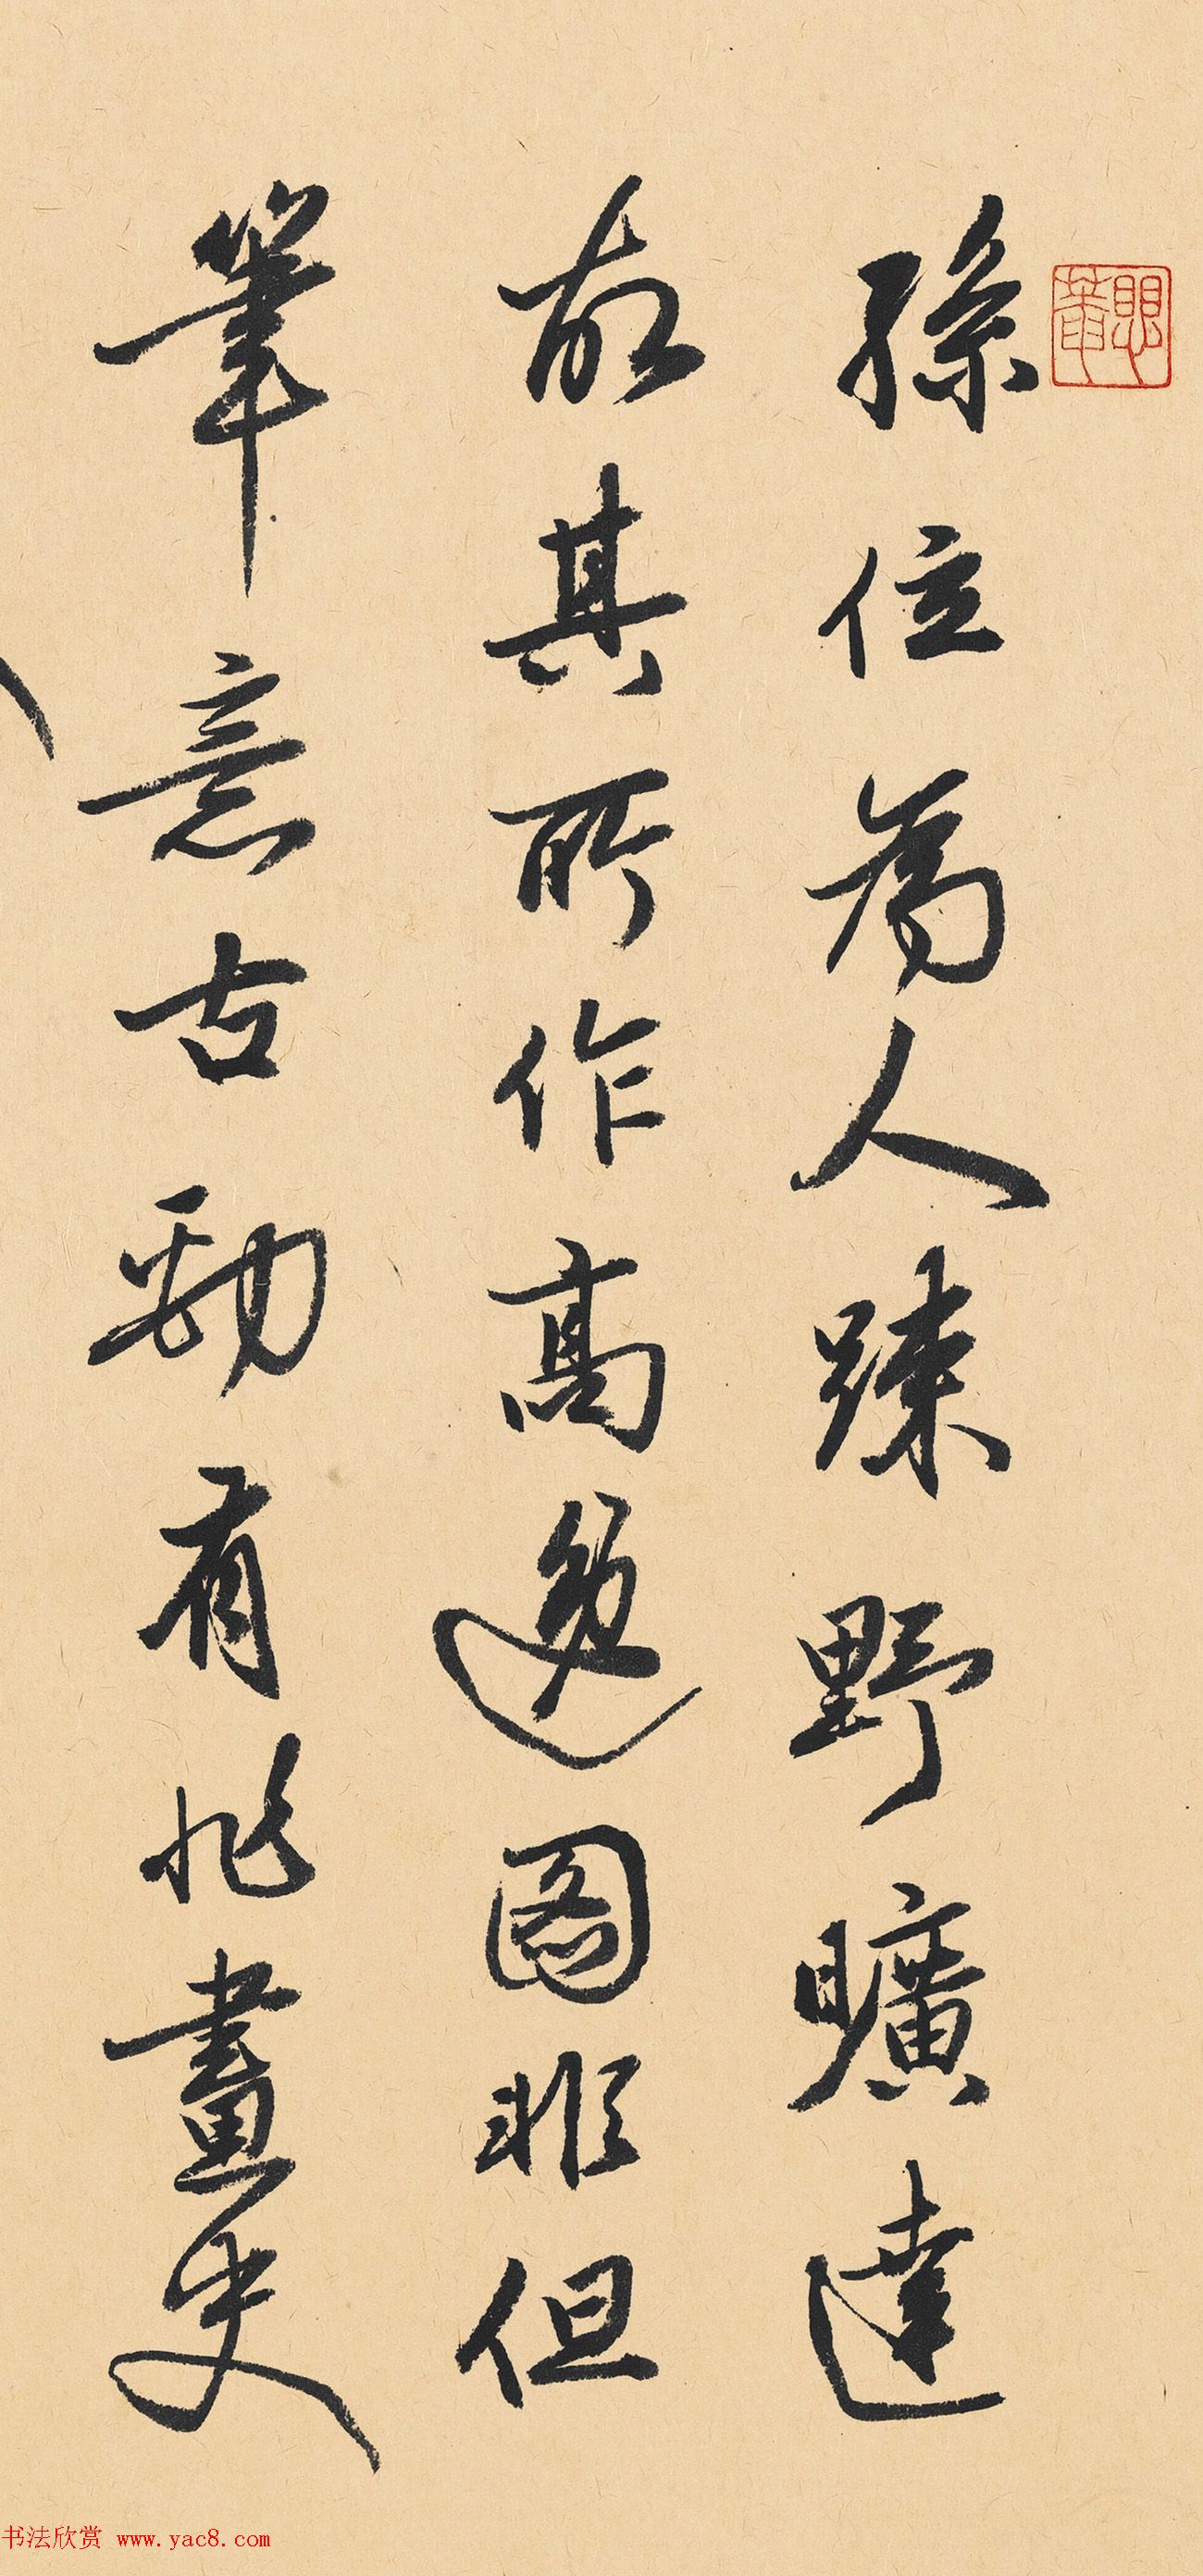 孫位為人踈野曠達
故其所作高逸圖非但
筆意古勁有非畫史
书法欣赏 www.yac8.com